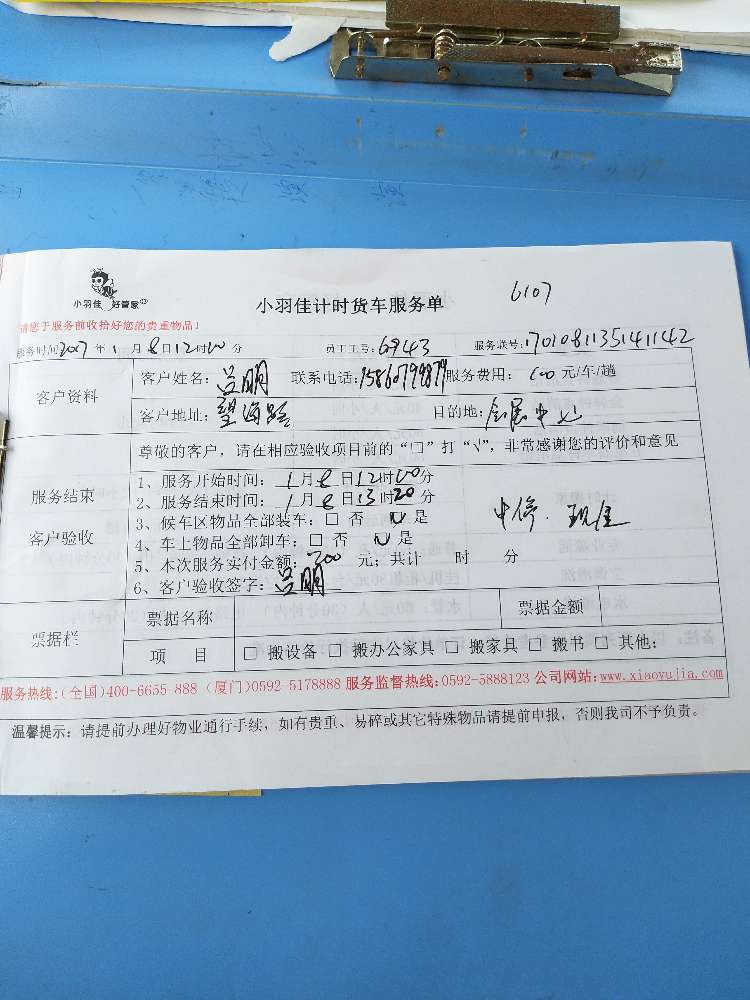 小羽佳 好管家
小羽佳计时货车服务单
6107
请您于服务前收拾好您的贵重物品!
服务时间2017年1月8日12时00分 员工工号:6943 服务联号:1701081135141142
客户资料
客户姓名:吕朋 联系电话:15860799879 服务费用: 元/车/趟
客户地址:望海路 目的地:会展中心
服务结束
客户验收
尊敬的客户,请在相应验收项目前的“□”打“√”,非常感谢您的评价和意见
1、服务开始时间:1月8日12时00分
2、服务结束时间:1月8日13时20分
3、候车区物品全部装车:□ 否 √ 是
4、车上物品全部卸车:□ 否 √ 是
5、本次服务实付金额: 元;共计 时 分
6、客户验收签字:吕朋
中停. 现佳
票据栏
票据名称 票据金额
项 目 □ 搬设备 □ 搬办公家具 □ 搬家具 □ 搬书 □ 其他:
服务热线:(全国)400-6655 888 (厦门)0592-5178888 服务监督热线:0592-5888123 公司网站:www.xiaoyujia.com
温馨提示:请提前办理好物业通行手续,如有贵重、易碎或其它特殊物品请提前申报,否则我司不予负责。